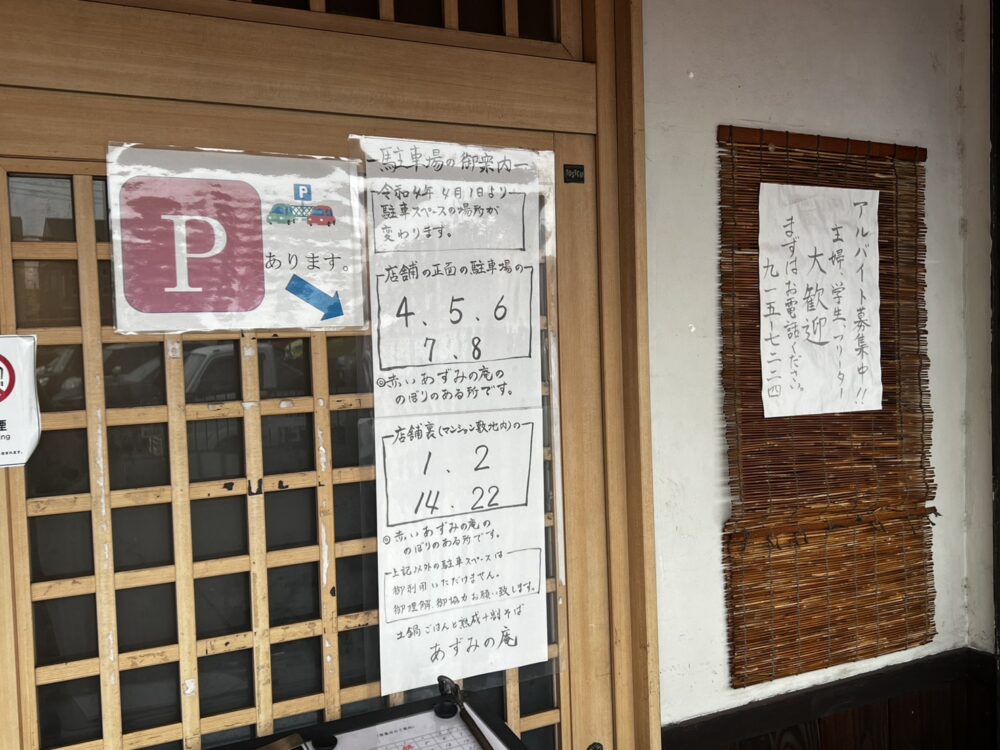 P
P
あります。
駐車場の御案内
令和4年4月1日より
駐車スペースの場所が
変わります。
店舗の正面の駐車場の
4、5、6
7、8
◎赤いあずみの庵の
のぼりのある所です。
店舗裏(マンション敷地内)の
1、2
14、22
◎赤いあずみの庵の
のぼりのある所です。
上記以外の駐車スペースは
御利用いただけません。
御理解、御協力お願い致します。
土鍋ごはんと熟成十割そば
あずみの庵
アルバイト募集中!!
主婦、学生、フリーター
大歓迎
まずはお電話ください。
九一五-七二二四